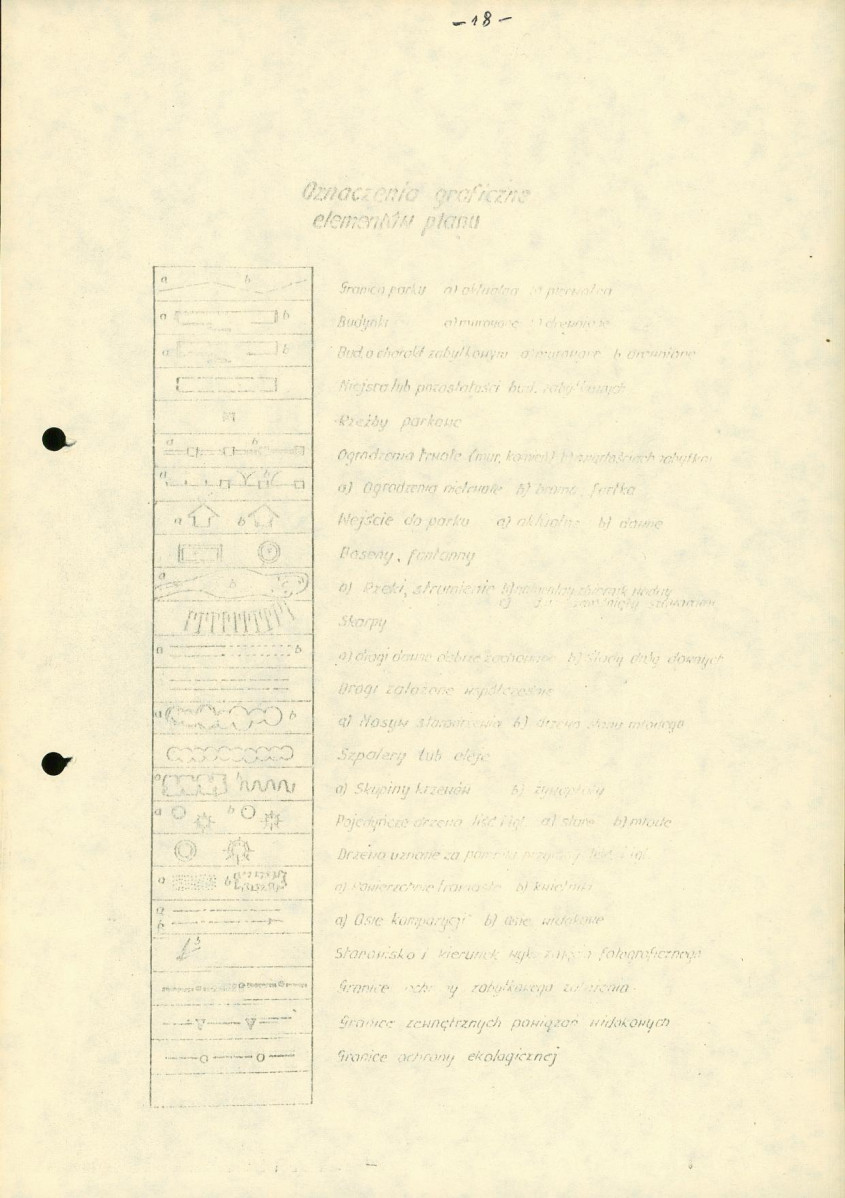 -18-
Oznaczenia graficzne
elementów planu
a b
Granica parku a) aktualna b) pierwotna
a b
Budynki a) murowane b) drewniane
a b
Bud. o charakt. zabytkowym a) murowane b) drewniane
Miejsca lub pozostałości bud. zabytkowych
Rzeźby parkowe
a b
Ogrodzenia trwałe (mur, kamień)
a b
a) Ogrodzenia nietrwałe b) brama, furtka
a b
Wejście do parku a) aktualne b) dawne
Baseny, fontanny
a b
Rzeki, strumienie
Skarpy
a b
a) drogi dawne dobrze zachowane b) ślady dróg dawnych
Drogi założone współcześnie
a b
a) Masyw starodrzewia b) drzewa
Szpalery lub aleje
a b
a) Skupiny krzewów b) żywopłoty
a b
Pojedyńcze drzewa liść. i igl. a) stare b) młode
Drzewa uznane za
a b
a) Powierzchnie trawiaste b) kwietniki
a
b
a) Osie kompozycji b) osie widokowe
Stanowisko i kierunek fotograficznego
Granice ochrony zabytkowego założenia
Granice zewnętrznych powiązań widokowych
Granice ochrony ekologicznej